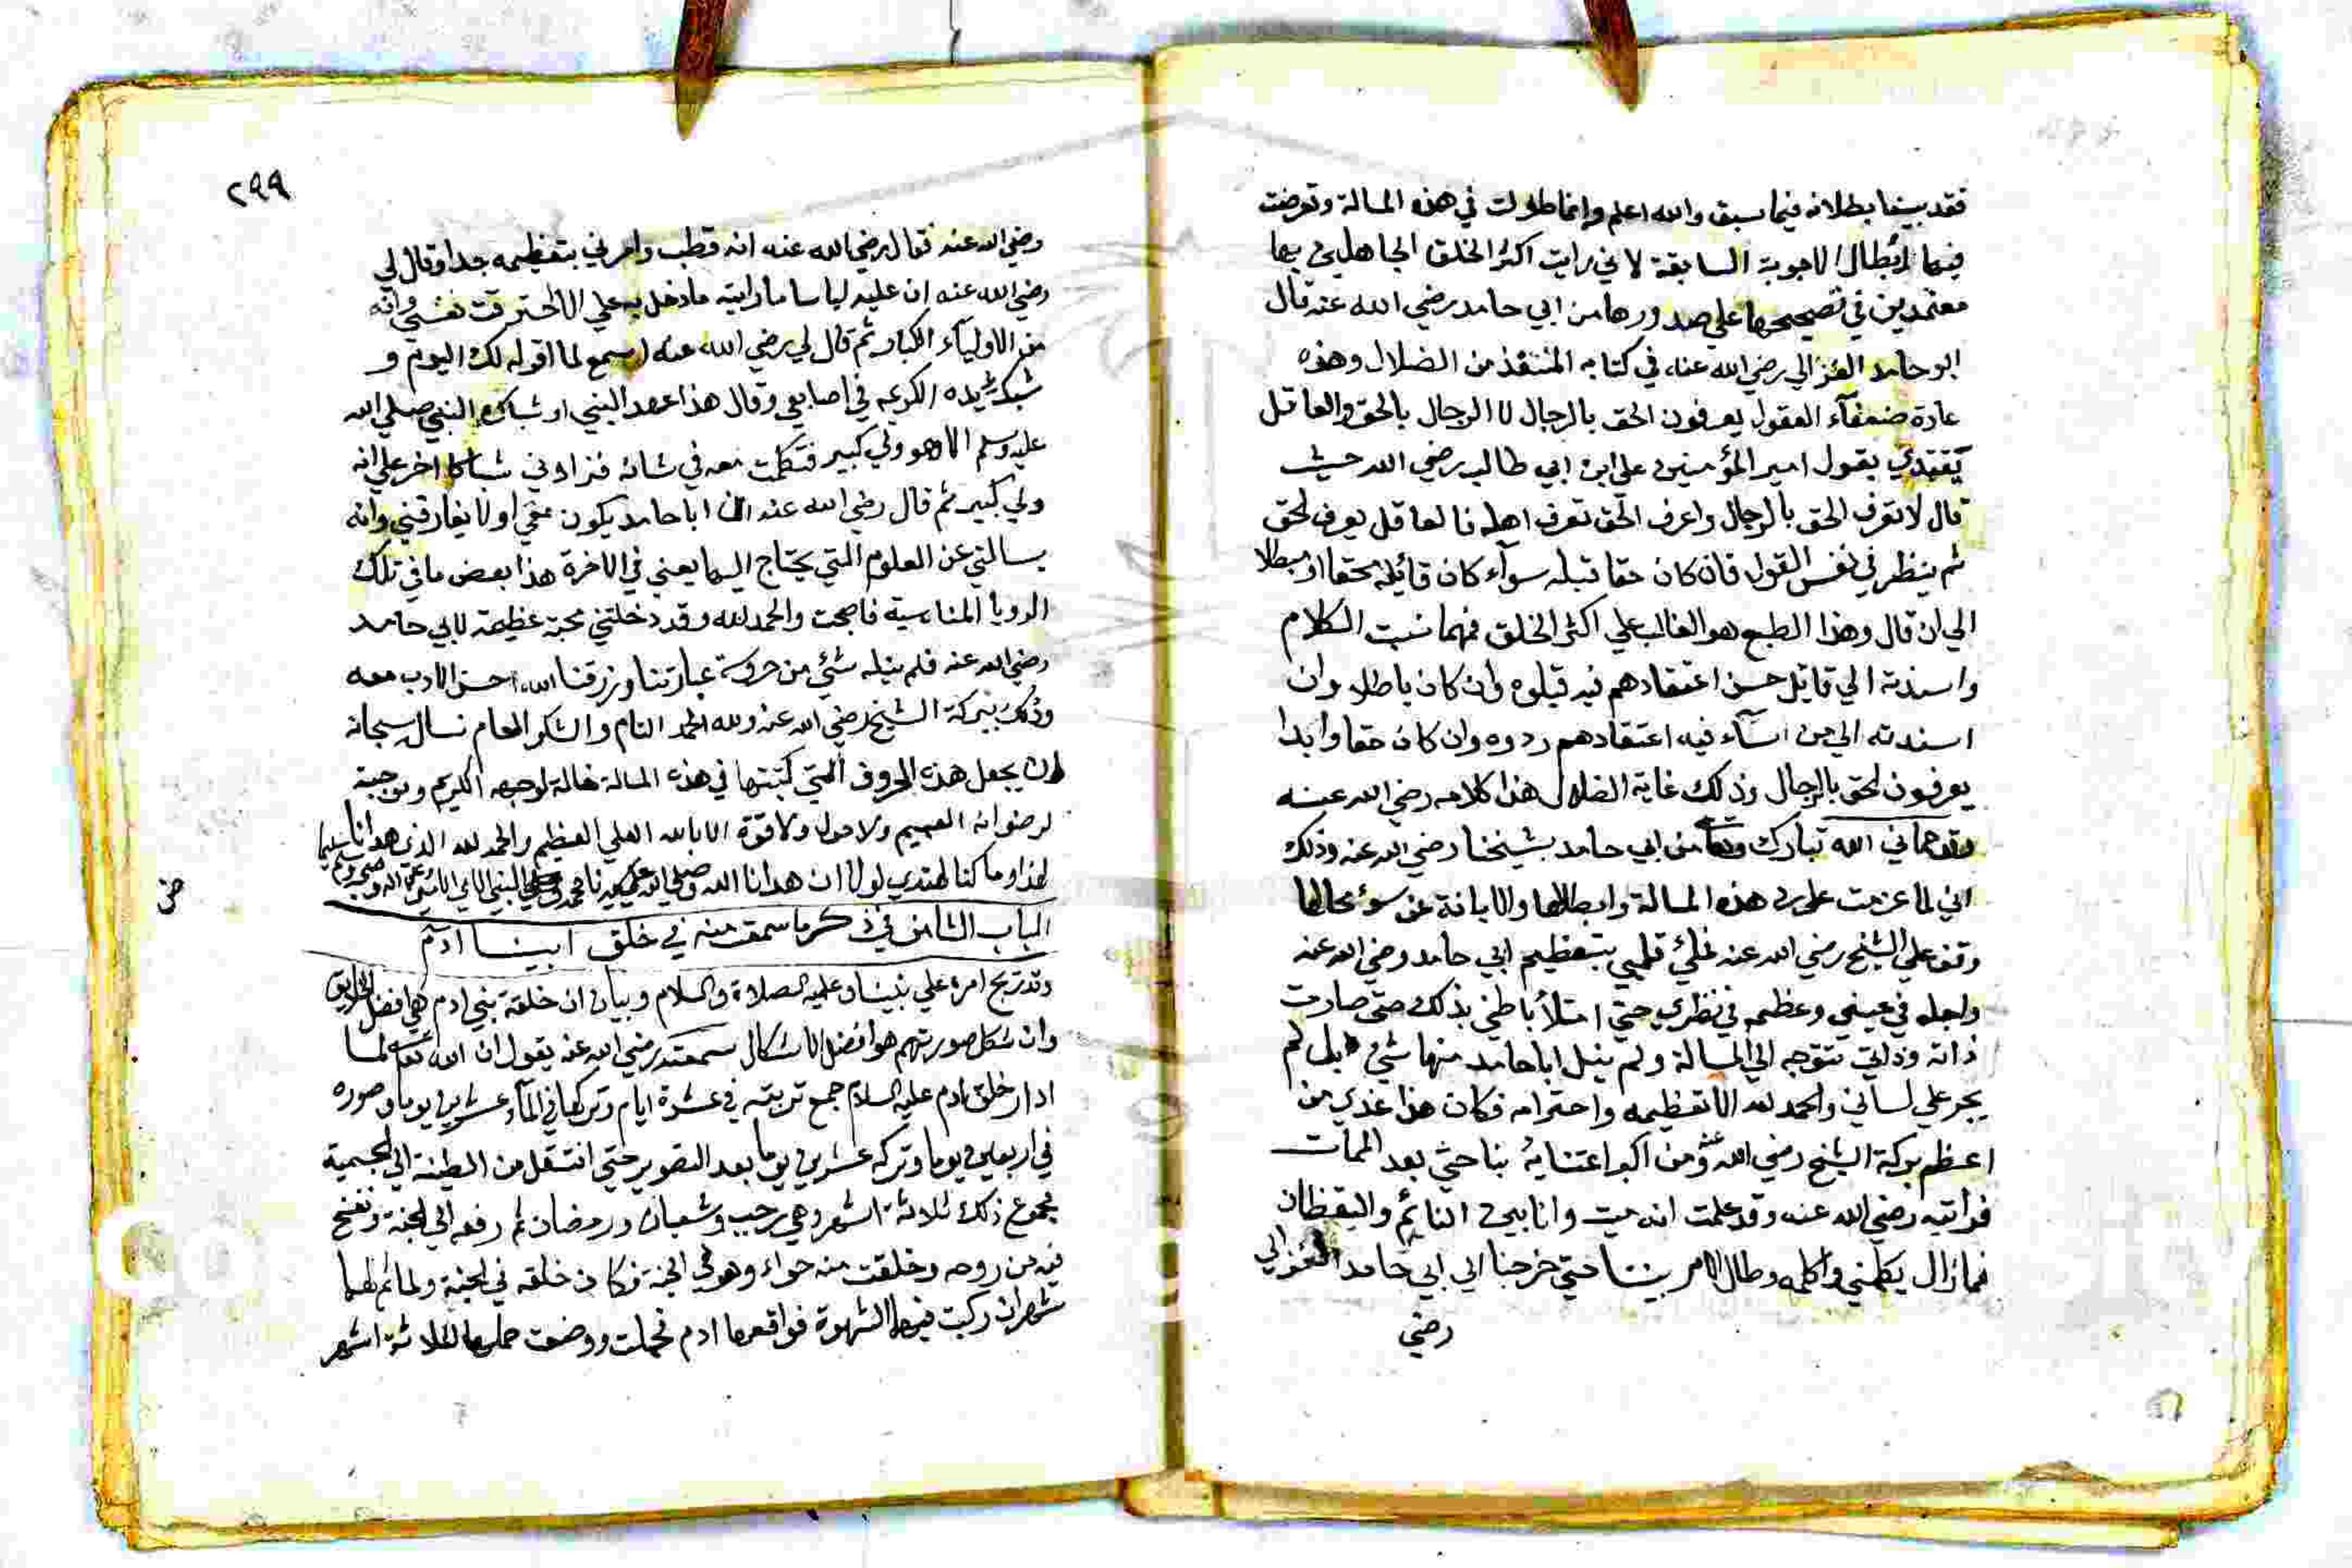 فقد بينا بطلانه فيما سبق والله اعلم وانما طولت في هذه المسالة وتعرضت
فيها لابطال الاجوبة السابقة لاني رايت اكثر الخلق الجاهلين بها
معتمدين في تصحيحها علي صدورها من ابي حامد رضي الله عنه قال
ابو حامد الغزالي رضي الله عنه في كتابه المنقذ من الضلال وهذه
عادة ضعفآء العقول يعرفون الحق بالرجال لا الرجال بالحق والعاقل
يقتدي بقول امير المؤمنين علي ابن ابي طالب رضي الله حيث
قال لا تعرف الحق بالرجال واعرف الحق تعرف اهله فالعاقل يعرف الحق
ثم ينظر في نفس القول فان كان حقا قبله سوآء كان قائله محقا او مبطلا
الي ان قال وهذا الطبع هو الغالب علي اكثر الخلق فمهما نسبت الكلام
واسندته الي قايل حسن اعتقادهم فيه قبلوه وان كان باطلا وان
اسندته الي من اسآء فيه اعتقادهم ردوه وان كان حقا وابدا
يعرفون الحق بالرجال وذلك غاية الضلال هذا كلامه رضي الله عنه
وقد حماني الله تبارك وتعا من ابي حامد بشيخنا رضي الله عنه وذلك
اني لما عزمت علي رد هذه المسالة وابطالها والابانة عن سوء حالها
وقف علي الشيخ رضي الله عنه فملئ قلبي بتعظيم ابي حامد رضي الله عنه
واجله في عيني وعظمه في نظري حتي امتلأ باطني بذلك حتي صارت
ذاته وذاتي تتوجه الي المسالة ولم ينل ابا حامد منها شئ بل لم
يجر علي لساني والحمد لله الا تعظيمه واحترامه فكان هذا عندي من
اعظم بركة الشيخ رضي الله عنه ومن اكبر اعتنايه بنا حتي بعد الممات
فرايته رضي الله عنه وقد علمت انه ميت وانا بين النائم واليقظان
فما زال يكلمني واكلمه وطال الامر بيننا حتي خرجنا الي ابي حامد الغزالي
رضي
٢٩٩
رضي الله عنه فقال رضي الله عنه انه قطب وامرني بتعظيمه جدا وقال لي
رضي الله عنه ان عليه لباسا ما رايته ما دخل به علي الا احترقت نفسي وانه
من الاوليآء الكبار ثم قال لي رضي الله عنه اسمع لما اقوله لك اليوم و
شبك يده الكريمه في اصابعي وقال هذا عهد النبي او شباك النبي صلي الله
عليه وسلم الا هو ولي كبير فتكلمت معه في شانه فزادني شباكا اخر علي انه
ولي كبير ثم قال رضي الله عنه ان ابا حامد يكون معي او لا يفارقني وانه
يسالني عن العلوم التي يحتاج اليها يعني في الاخرة هذا بعض ما في تلك
الرويا المناسبة فاصبحت والحمد لله وقد دخلتني محبة عظيمة لابي حامد
رضي الله عنه فلم ينله شئي من حروشة عبارتنا ورزقنا الله احسن الادب معه
وذلك ببركة الشيخ رضي الله عنه ولله الحمد التام والشكر العام نسال سبحانه
ان يجعل هذه الحروف التي كتبتها في هذه المسالة خالة لوجهه الكريم وموجبة
لرضوانه العميم ولا حول ولا قوة الا بالله العلي العظيم والحمد لله الذي هدانا
لهذا وما كنا لنهتدي لولا ان هدانا الله وصلي الله علي سيدنا محمد النبي الامي
الباب الثامن في ذكر ما سمعت منه في خلق ابينا ادم
وتدريج امره علي نبينا وعليه الصلاة والسلام وبيان ان خلقة بني ادم هي افضل الخلايق
وان شكل صورتهم هو افضل الاشكال سمعته رضي الله عنه يقول ان الله تعا لما
اراد خلق ادم عليه السلام جمع تربته في عشرة ايام وتركها في المآء عشرين يوما وصوره
في اربعين يوما وتركه عشرين يوما بعد التصوير حتي انتقل من الطينة الي الجسمية
مجموع ذلك ثلاثة اشهر وهي رجب وشعبان ورمضان ثم رفعه الي الجنة ونفخ
فيه من روحه وخلقت منه حواء وهو في الجنة فكان خلقه في الجنة ولما تم لهما
شهران ركبت فيهما الشهوة فواقعها ادم فحملت ووضعت حملها لثلاثة اشهر